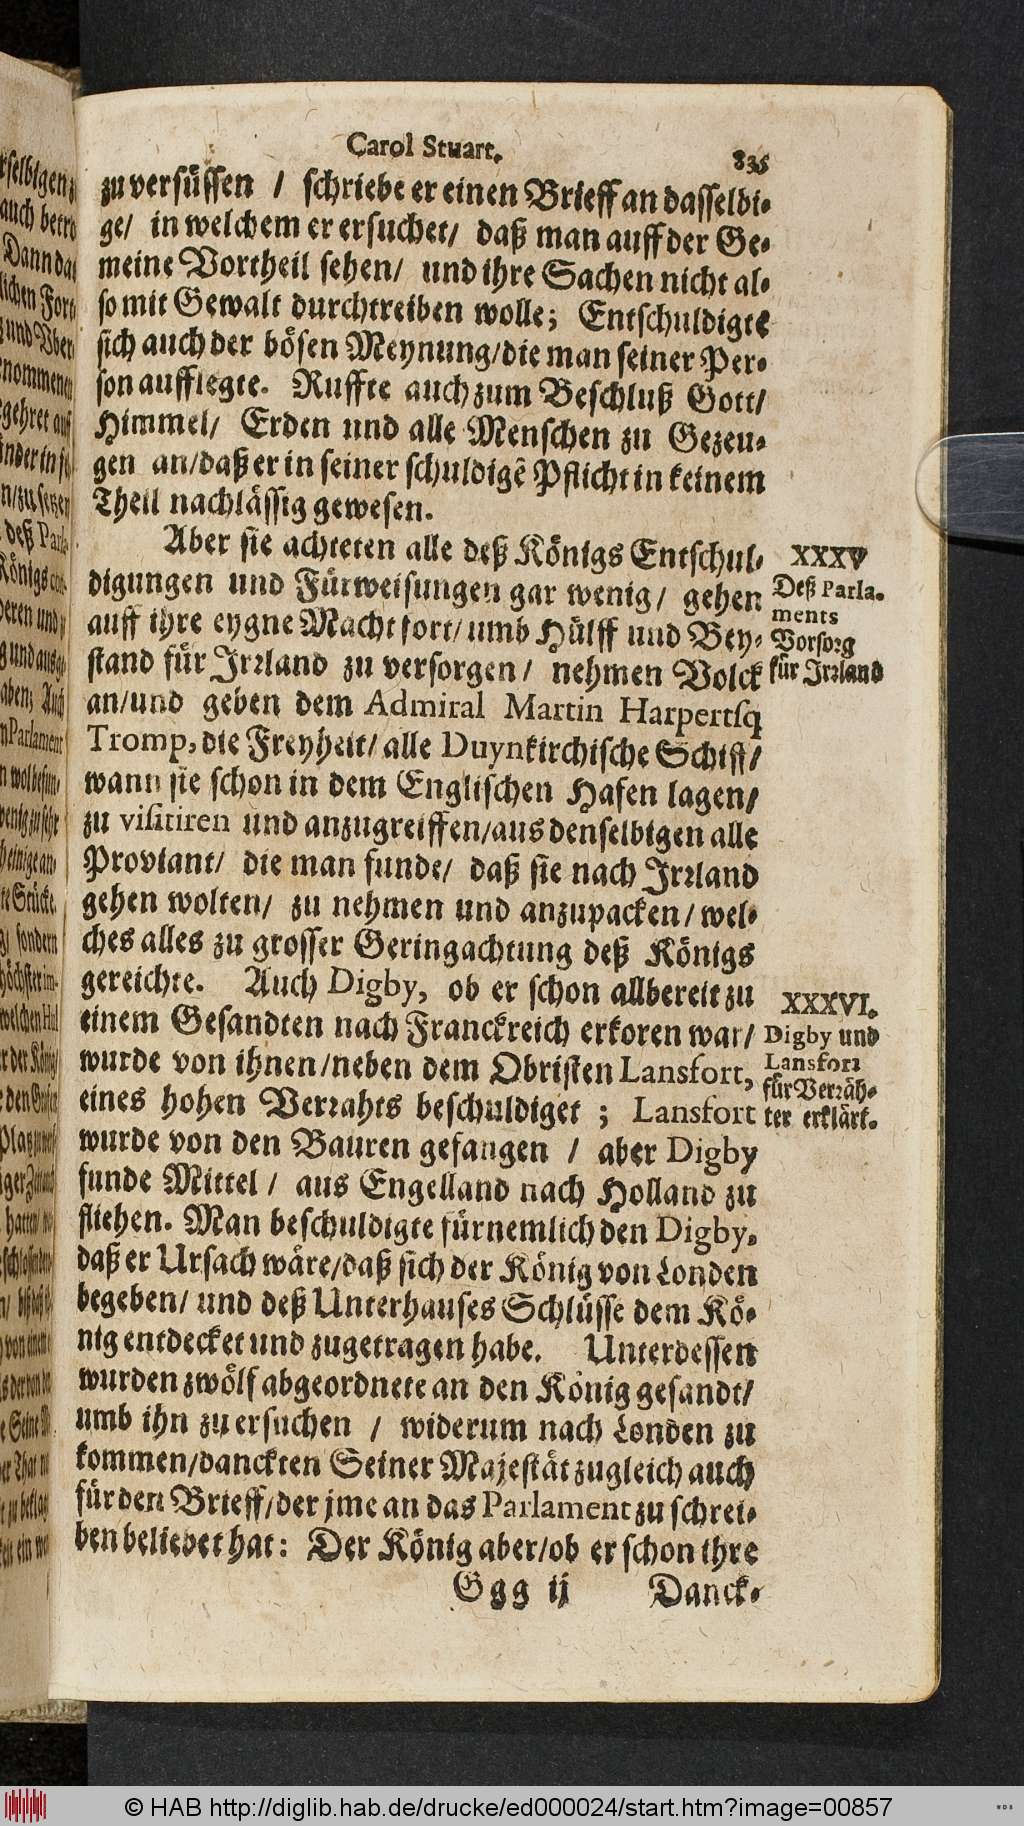 Carol Stuart. 835
zu versüssen / schriebe er einen Brieff an dasselbi-
ge/ in welchem er ersuchet/ daß man auff der Ge-
meine Vortheil sehen/ und ihre Sachen nicht al-
so mit Gewalt durchtreiben wolle; Entschuldigte
sich auch der bösen Meynung/die man seiner Per-
son aufflegte. Ruffte auch zum Beschluß Gott/
Himmel/ Erden und alle Menschen zu Gezeu-
gen an/daß er in seiner schuldigẽ Pflicht in keinem
Theil nachlässig gewesen.
Aber sie achteten alle deß Königs Entschul-
digungen und Fürweisungen gar wenig/ gehen
auff ihre eygne Macht fort/umb Hülff und Bey-
stand für Irrland zu versorgen/ nehmen Volck
an/und geben dem Admiral Martin Harpertsq
Tromp, die Freyheit/ alle Duynkirchische Schiff/
wann sie schon in dem Englischen Hafen lagen/
zu visitiren und anzugreiffen/aus denselbigen alle
Proviant/ die man funde/ daß sie nach Irrland
gehen wolten/ zu nehmen und anzupacken/ wel-
ches alles zu grosser Geringachtung deß Königs
gereichte. Auch Digby, ob er schon allbereit zu
einem Gesandten nach Franckreich erkoren war/
wurde von ihnen/neben dem Obristen Lansfort,
eines hohen Verrahts beschuldiget ; Lansfort
wurde von den Bauren gefangen / aber Digby
funde Mittel/ aus Engelland nach Holland zu
fliehen. Man beschuldigte fürnemlich den Digby,
daß er Ursach wäre/daß sich der König von Londen
begeben/ und deß Unterhauses Schlüsse dem Kö-
nig entdecket und zugetragen habe. Unterdessen
wurden zwölf abgeordnete an den König gesandt/
umb ihn zu ersuchen / widerum nach Londen zu
kommen/danckten Seiner Majestät zugleich auch
für den Brieff/der jme an das Parlament zu schrei-
ben beliebet hat: Der König aber/ob er schon ihre
Ggg ij Danck-
XXXV
Deß Parla-
ments
Vorsorg
für Irrland
XXXVI.
Digby und
Lansfort
für Verräh-
ter erklärt.
© HAB http://diglib.hab.de/drucke/ed000024/start.htm?image=00857